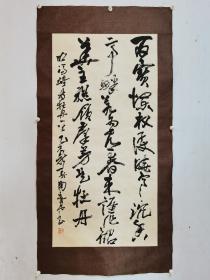 百寶欄杆護曉寒沉香
亭畔若為看春來誰作韶
華主總領群芳是牡丹
馮琦牡丹一